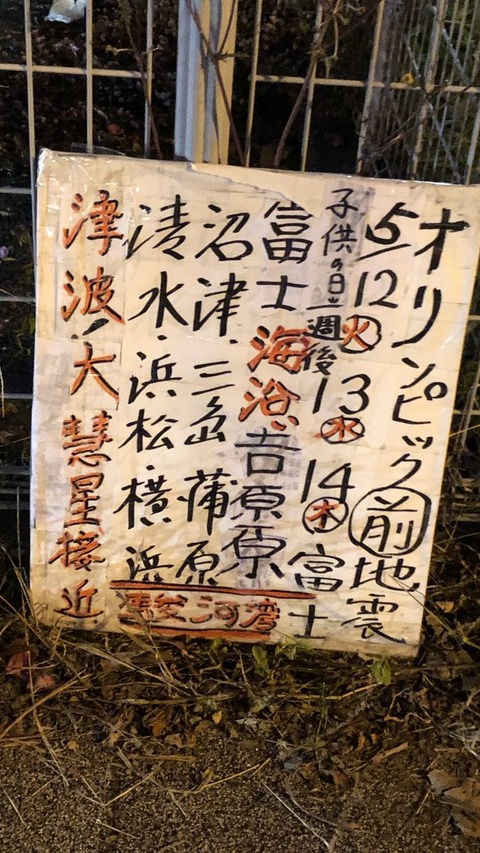 オリンピック前地震
5/12火13水14木富士
子供の日一週後
富士海沿吉原原
沼津・三島蒲原
清水・浜松・横浜
駿河湾
津波!大彗星接近